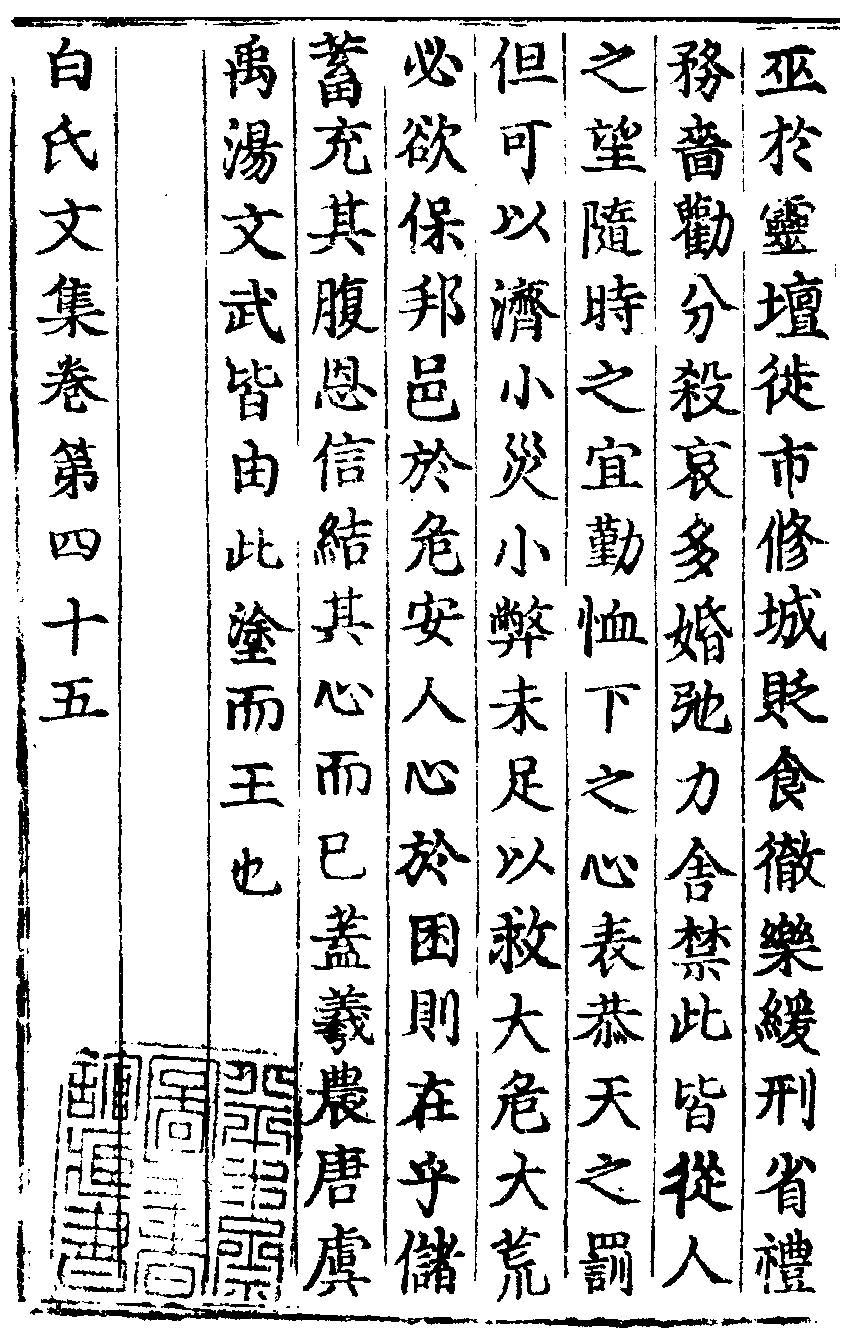 巫於靈壇徙市修城貶食徹樂緩刑省禮
務嗇勸分殺哀多婚弛力舍禁此皆從人
之望隨時之宜勤恤下之心表恭天之罰
但可以濟小災小弊未足以救大危大荒
必欲保邦邑於危安人心於困則在乎儲
蓄充其腹恩信結其心而已蓋羲農唐虞
禹湯文武皆由此塗而王也
白氏文集卷第四十五